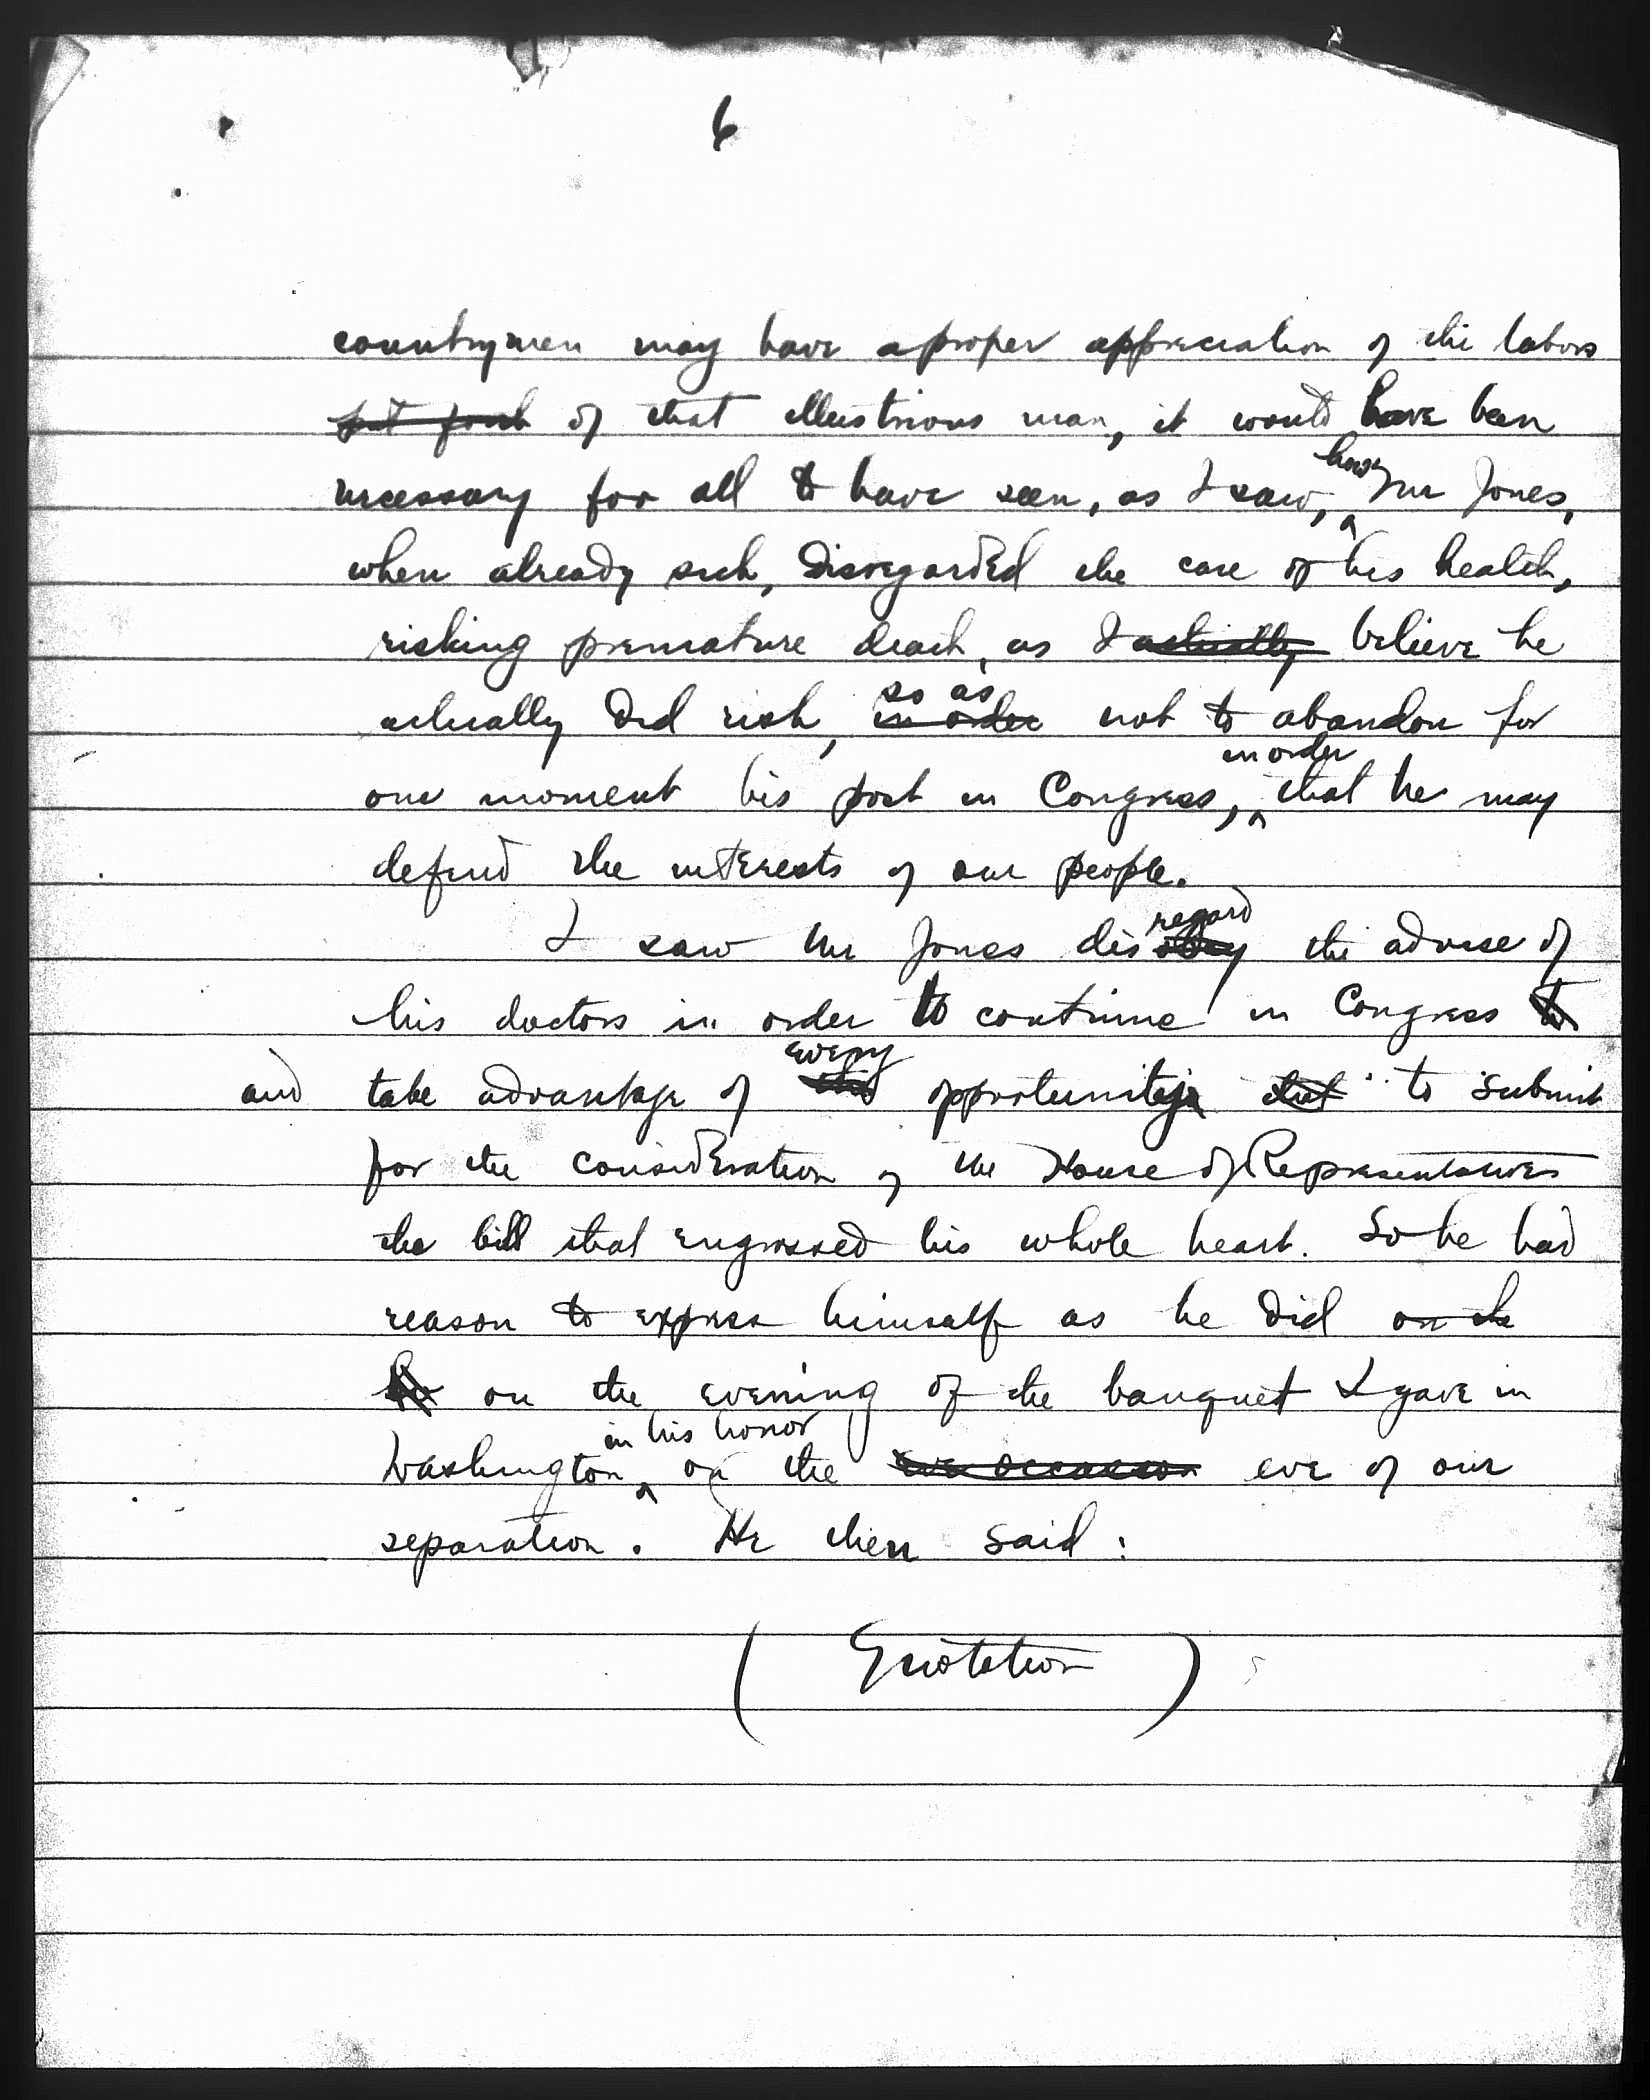 6
countrymen may have a proper appreciation of the labors
put forth of that illustrious man, it would have been
necessary for all to have seen, as I saw, how Mr Jones,
when already sick, disregarded the care of his health,
risking premature death, as I actually believe he
actually did risk, in order so as not to abandon for
one moment his post in Congress, in order that he may
defend the interests of our people.
I saw Mr Jones disobey regard the advise of
his doctors in order to continue in Congress to
and take advantage of this every opportunity that to submit
for the consideration of the House of Representatives
the bill that engrossed his whole heart. So he had
reason to express himself as he did on the
on the evening of the banquet I gave in
Washington in his honor on the eve occasion eve of our
separation. He then said:
( Quotation )